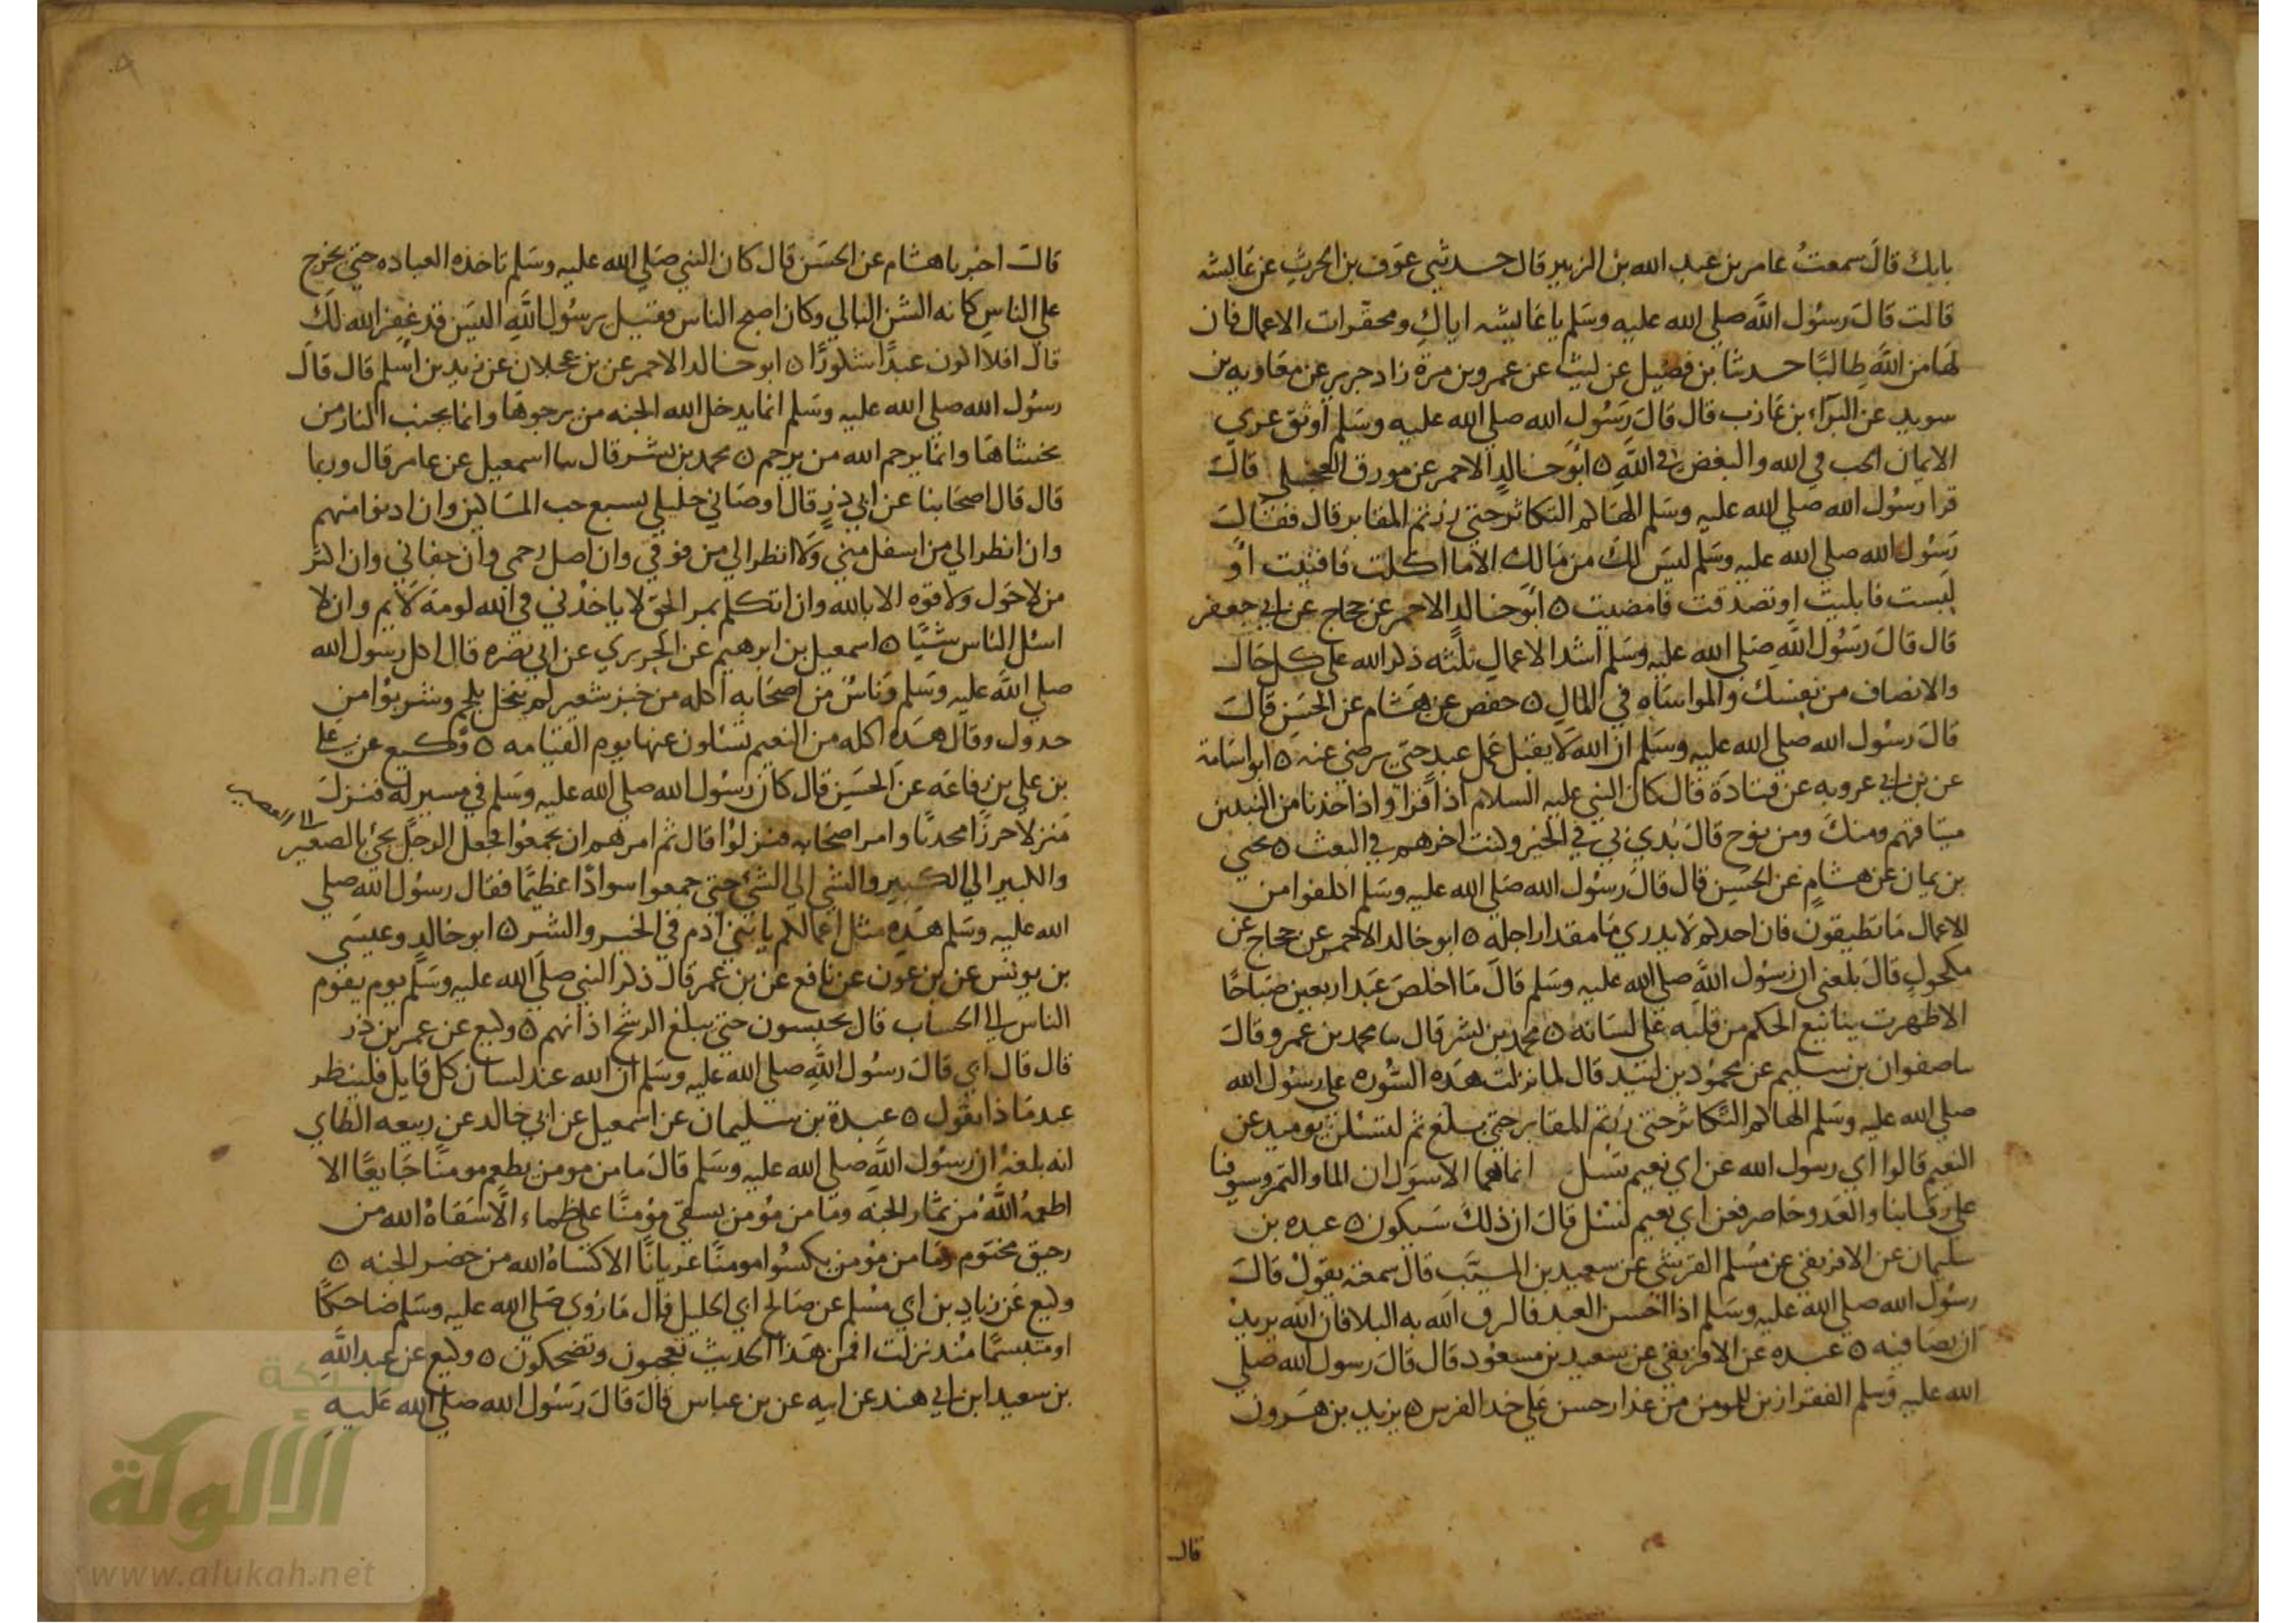 بابك قال سمعت عامر بن عبد الله بن الزبير قال حدثني عوف بن الحرث عن عايشه
قالت قال رسول الله صلي الله عليه وسلم يا عايشه اياك ومحقرات الاعمال فان
لها من الله طالبا حدثنا بن فضيل عن ليث عن عمرو بن مرة زاد جرير عن معاويه بن
سويد عن البراء بن عازب قال قال رسول الله صلي الله عليه وسلم اوثق عري
الايمان الحب في الله والبغض في الله ه ابو خالد الاحمر عن مورق العجلي قال
قرا رسول الله صلي الله عليه وسلم الهاكم التكاثر حتي زرتم المقابر قال فقال
رسول الله صلي الله عليه وسلم ليس لك من مالك الا ما اكلت فافنيت او
لبست فابليت او تصدقت فامضيت ه ابو خالد الاحمر عن حجاج عن ابي جعفر
قال قال رسول الله صلي الله عليه وسلم اشد الاعمال ثلثه ذكر الله علي كل حال
والانصاف من نفسك والمواساه في المال ه حفص عن هشام عن الحسن قال
قال رسول الله صلي الله عليه وسلم ان الله لا يقبل عمل عبد حتي يرضي عنه ه ابو اسامة
عن بن ابي عروبه عن قتادة قال كان النبي عليه السلام اذا قرا واذ اخذنا من النبيين
ميثاقهم ومنك ومن نوح قال بدي بي في الخير وكنت اخرهم في البعث ه يحيي
بن يمان عن هشام عن الحسن قال قال رسول الله صلي الله عليه وسلم اكلفوا من
الاعمال ما تطيقون فان احدكم لا يدري ما مقدار اجله ه ابو خالد الاحمر عن حجاج عن
مكحول قال بلغني ان رسول الله صلي الله عليه وسلم قال ما اخلص عبد اربعين صباحا
الا ظهرت ينابيع الحكم من قلبه علي لسانه ه محمد بن بشر قال سا محمد بن عمرو قال
سا صفوان بن سليم عن محمود بن لبيد قال لما نزلت هذه السوره علي رسول الله
صلي الله عليه وسلم الهاكم التكاثر حتي زرتم المقابر حتي بلغ ثم لتسئلن يوميد عن
النعيم قالوا اي رسول الله عن اي نعيم نسل انما هما الاسودان الما والتمر وسيوفنا
علي رقابنا والعدو حاصر فعن اي نعيم نسئل قال ان ذلك سيكون ه عبده بن
سليمان عن الافريقي عن مسلم القرشي عن سعيد بن المسيب قال سمعته يقول قال
رسول الله صلي الله عليه وسلم اذا احسن العبد فالزق الله به البلا فان الله يريد
ان يصافيه ه عبده عن الافريقي عن سعيد بن مسعود قال قال رسول الله صلي
الله عليه وسلم الفقر ازين للمومن من عذار حسن علي خد الفرس ه يزيد بن هرون
قال
قال اخبرنا هشام عن الحسن قال كان النبي صلي الله عليه وسلم تاخذه العباده حتي يخرج
علي الناس كانه الشن البالي وكان اصبح الناس فقيل يرسول الله اليس قد غفر الله لك
قال افلا اكون عبدا شكورا ه ابو خالد الاحمر عن بن عجلان عن زيد بن اسلم قال قال
رسول الله صلي الله عليه وسلم انما يدخل الله الجنه من يرجوها وانما يجنب النار من
يخشاها وانما يرحم الله من يرحم ه محمد بن بشر قال سا اسمعيل عن عامر قال وربما
قال قال اصحابنا عن ابي ذر قال اوصاني خليلي بسبع حب المساكين وان ادنوا منهم
وان انظر الي من اسفل مني ولا انظر الي من فوقي وان اصل رحمي وان جفاني وان اكثر
من لا حول ولا قوه الا بالله وان اتكلم بمر الحق لا ياخذني في الله لومة لايم وان لا
اسئل الناس شيا ه اسمعيل بن ابرهيم عن الجريري عن ابي نضره قال اكل رسول الله
صلي الله عليه وسلم وناس من اصحابه اكله من خبز شعير لم ينخل بلحم وشربوا من
جدول وقال هذه اكله من النعيم تسئلون عنها يوم القيامه ه وكيع عن علي
بن علي بن رفاعه عن الحسن قال كان رسول الله صلي الله عليه وسلم في مسير له فنزل
منزلا حرزا مجدبا وامر اصحابه فنزلوا قال ثم امرهم ان يجمعوا فجعل الرجل يجئ بالصغير
الي الصغير
والكبير الي الكبير والشي الي الشئ حتي جمعوا سوادا عظيما فقال رسول الله صلي
الله عليه وسلم هذه مثل اعمالكم يا بني ادم في الخير والشر ه ابو خالد وعيسي
بن يونس عن بن عون عن نافع عن بن عمر قال ذكر النبي صلي الله عليه وسلم يوم يقوم
الناس الي الحساب قال يحبسون حتي يبلغ الرشح اذانهم ه وكيع عن عمر بن ذر
قال قال ابي قال رسول الله صلي الله عليه وسلم ان الله عند لسان كل قايل فلينظر
عبد ماذا يقول ه عبدة بن سليمان عن اسمعيل عن ابي خالد عن ربيعه الطاي
انه بلغه ان رسول الله صلي الله عليه وسلم قال ما من مومن يطعم مومنا جايعا الا
اطعمه الله من ثمار الجنه وما من مؤمن يسقي مؤمنا علي ظماء الا سقاه الله من
رحيق مختوم وما من مؤمن يكسوا مومنا عريانا الا كساه الله من خضر الجنه ه
وكيع عن زياد بن ابي مسلم عن صالح ابي الخليل قال ما رؤي صلي الله عليه وسلم ضاحكا
او متبسما منذ نزلت افمن هذا الحديث تعجبون وتضحكون ه وكيع عن عبد الله
بن سعيد ابن ابي هند عن ابيه عن بن عباس قال قال رسول الله صلي الله عليه
شبكة
الألوكة
www.alukah.net